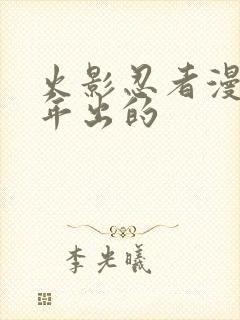 火影忍者漫
年出的
李光曦